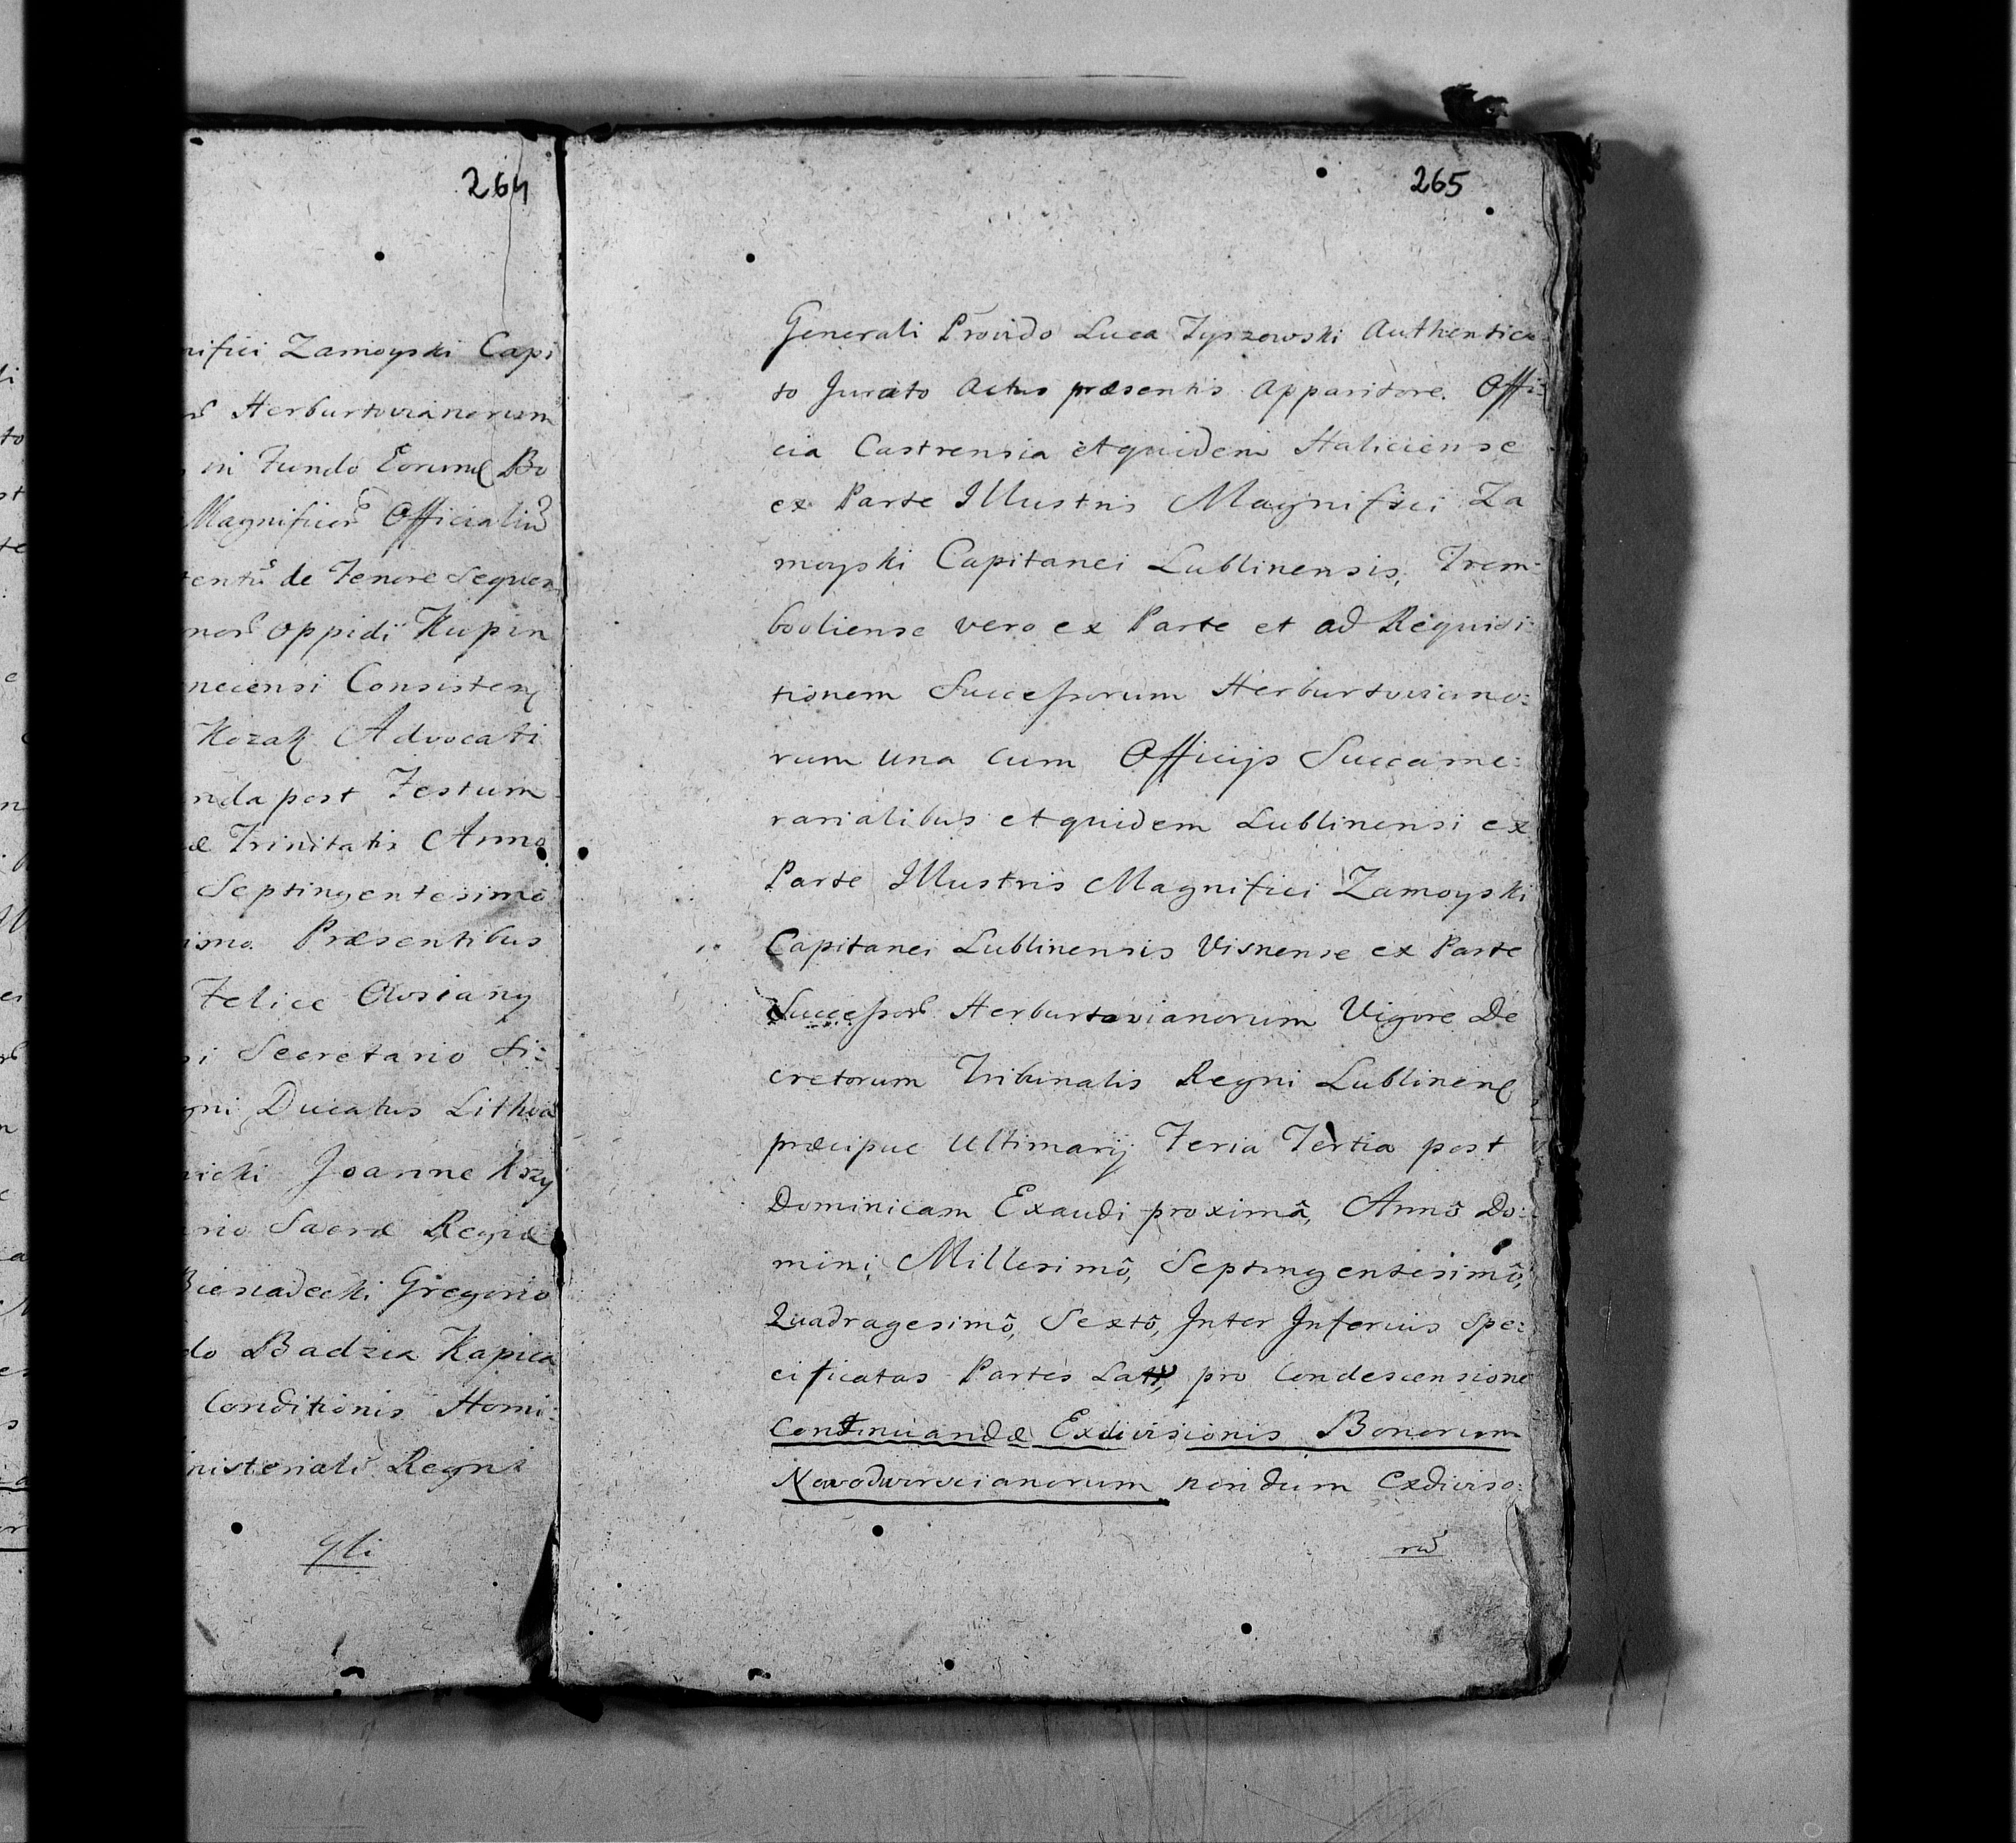 264
nifici Zamoyski Capi
Herburtovianorum
in Fundo Eorund Bo
Magnificor Officialiu
tentu de Tenore Sequen
nor oppidi Kupin
neciensi Consisten
Kozak Advocati
nda post Festum
æ Trinitatis Anno
Septingentesimo
imo. Præsentibus
Felice Owsiany
i Secretario Si:
gni Ducatus Lithva
nicki Joanne Krzy
rio Sacræ Regiæ
Biesiadecki Gregorio
do Badzia Kapica
Conditionis Homi:
nisteriali Regni
qli
265
Generali Provido Luca Tyszowski Authentica
to Jurato Actus præsentis Apparitore. Offi:
cia Castrensia et quidem Haliciense
ex Parte Illustris Magnifici Za
moyski Capitanei Lublinensis, Trem:
bowliense vero ex Parte et ad Requisi:
tionem Successorum Herburtoviano:
rum una cum Officijs Succame:
rarialibus et quidem Lublinensi ex
Parte Illustris Magnifici Zamoyski
Capitanei Lublinensis Visnense ex Parte
Successor Herburtovianorum Vigore De
cretorum Tribunalis Regni Lublinen
præcipue Ultimarij Feria Tertia post
Dominicam Exaudi proximâ, Annô Do:
mini Millesimô, Septingentesimô,
Quadragesimô, Sextô, Inter Inferius Spe:
cificatas Partes Lati, pro Condescensione
Continuandæ Exdivisionis Bonorum
Novodworscianorum nondum Exdiviso:
ru